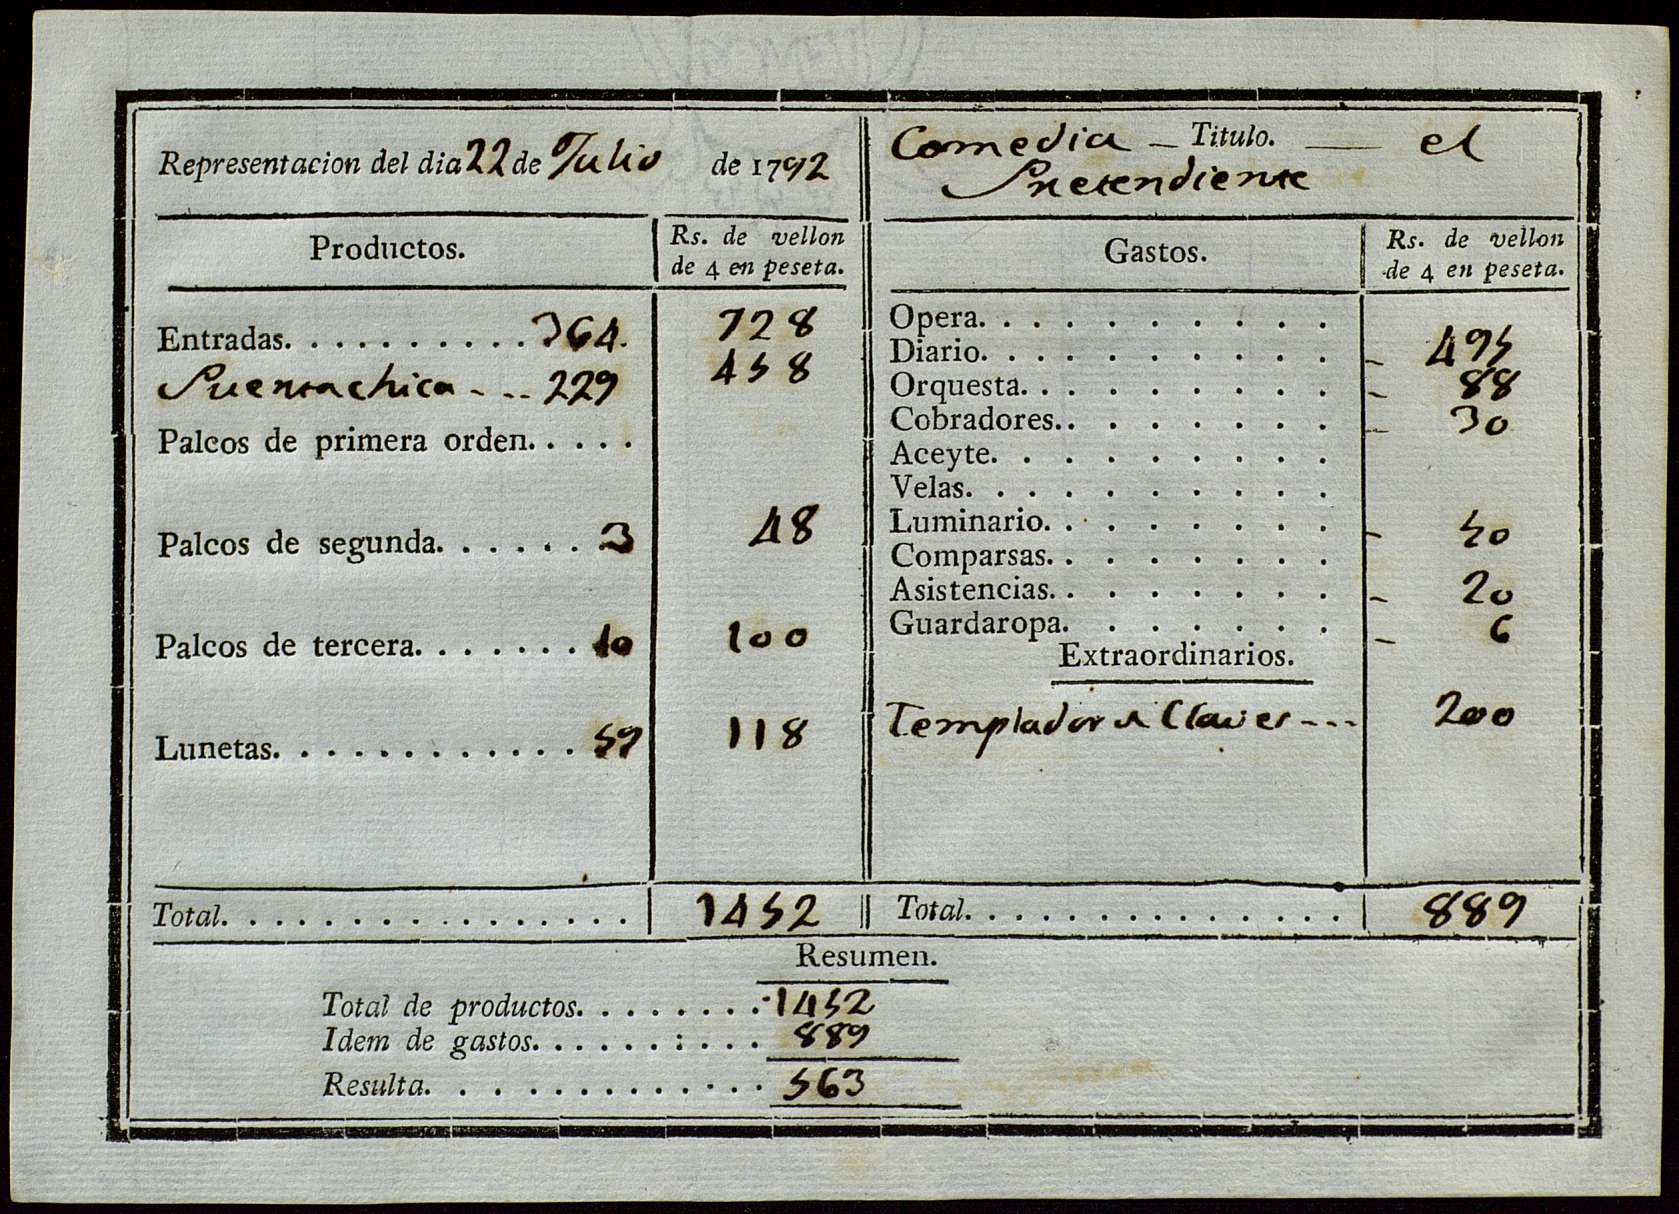 Representacion del dia 22 de Julio de 1792
Comedia - Titulo. — el
Pretendiente
Productos. Rs. de vellon
de 4 en peseta.
Entradas. . . . . . . . . . 364. 728
Puertachica - - . . 229 458
Palcos de primera orden. . . . .
Palcos de segunda. . . . . . 3 48
Palcos de tercera. . . . . . . 10 100
Lunetas. . . . . . . . . . . . 59 118
Total. . . . . . . . . . . . . . . . . 1452
Gastos. Rs. de vellon
de 4 en peseta.
Opera. . . . . . . . . .
Diario. . . . . . . . . . - 495
Orquesta. . . . . . . . . - 88
Cobradores. . . . . . . . - 30
Aceyte. . . . . . . . . .
Velas. . . . . . . . . .
Luminario. . . . . . . . - 50
Comparsas. . . . . . . .
Asistencias. . . . . . . . - 20
Guardaropa. . . . . . . . - 6
Extraordinarios.
Templador de Claves - - - 200
Total. . . . . . . . . . . . . . . 889
Resumen.
Total de productos. . . . . . . . 1452
Idem de gastos. . . . . . : . . . 889
Resulta. . . . . . . . . . . . . . 563